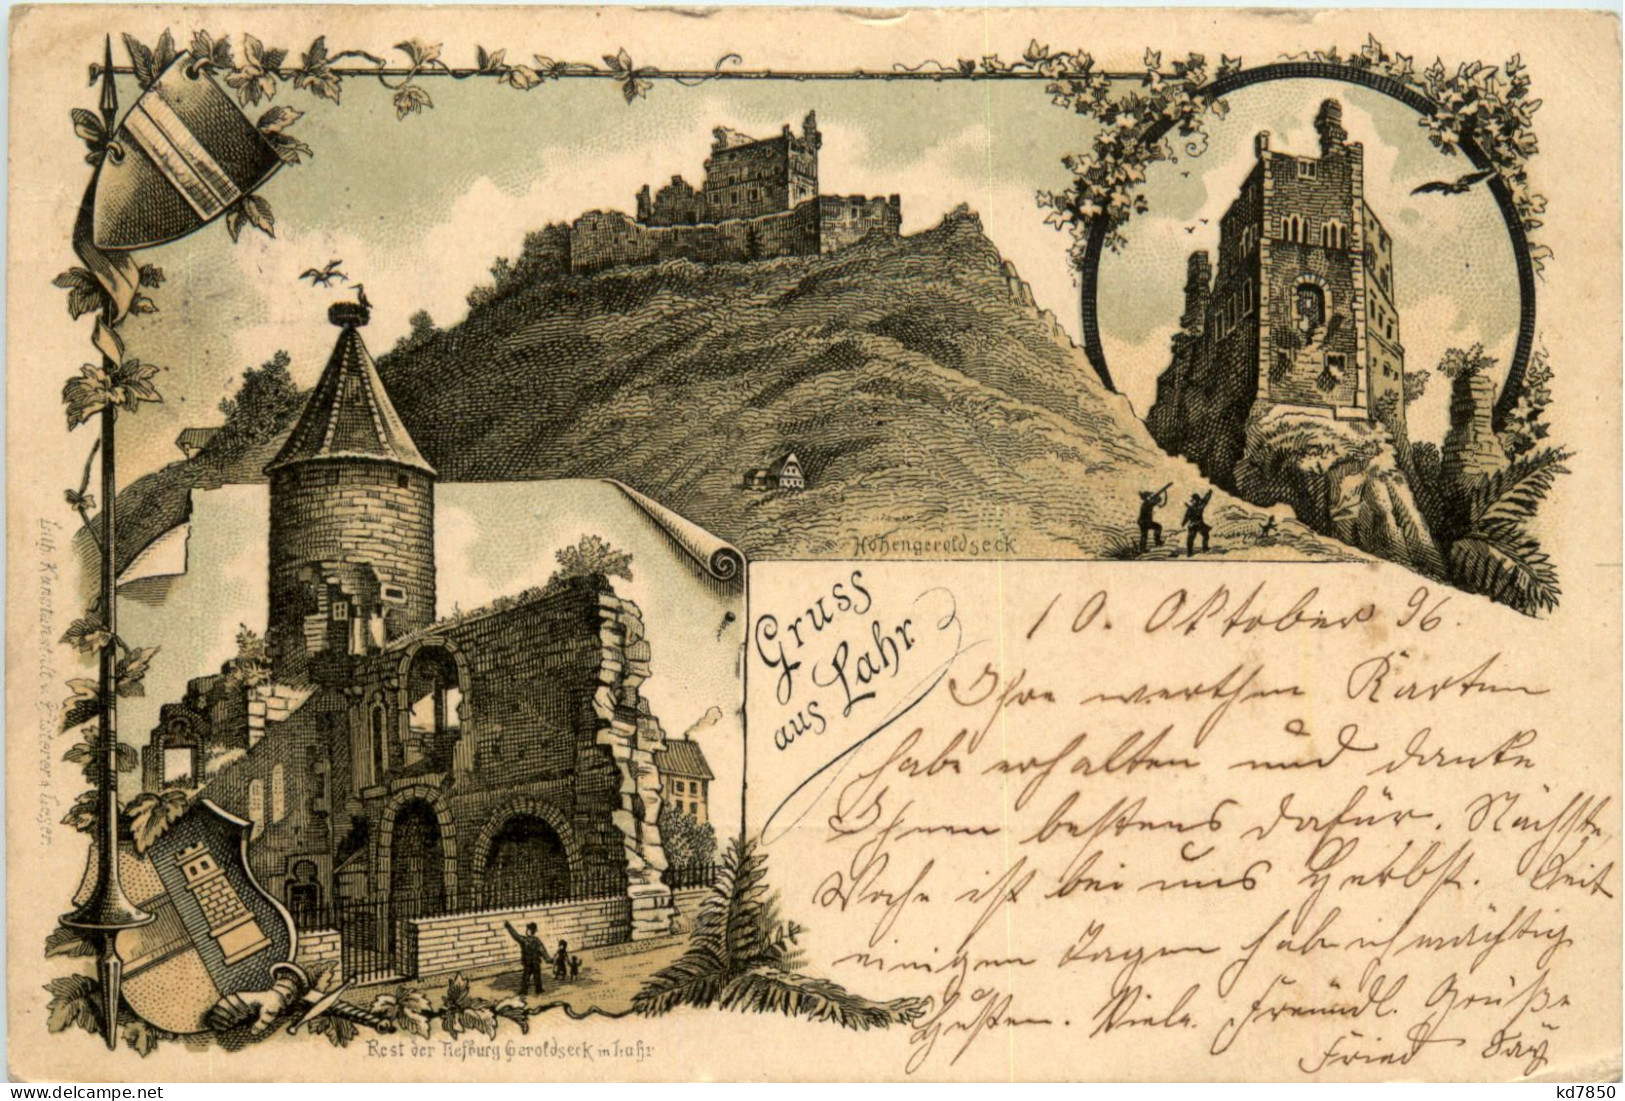 Hohengeroldseck
Gruss
aus Lahr
10. Oktober 96.
Ihre werthen Karten
habe erhalten und danke
Ihnen bestens dafür. Nächste
Woche ist bei uns Herbst. Seit
einigen Tagen habe ich mächtig
Husten. Viele freundl. Grüße
Fried
Rest der Tiefburg Geroldseck in Lahr
Lith. Kunstanstalt v.
kd7850